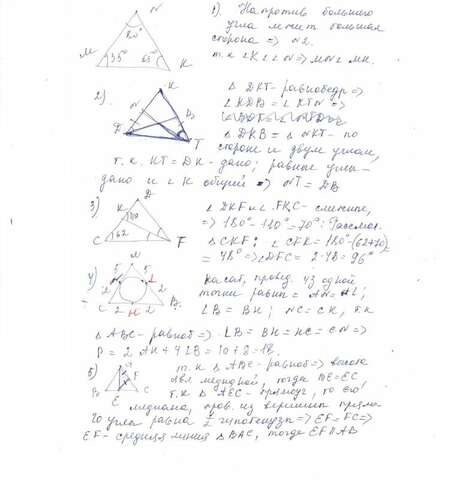 N
80°
M
35°
65°
K
1). Напротив большего
угла лежит большая
сторона => N2.
т.к ∠K < ∠N => MN < MK.
2)
K
N
B
D
T
Δ DKT - равнобедр =>
∠KDB = ∠KTN =>
Δ DKB = Δ NKT - по
стороне и двум углам,
т.к. KT = DK - дано; равные углы -
дано и ∠K общий => NT = DB
3)
D
K
110
C
62
F
∠DKF и ∠FKC - смежные,
=> 180° - 110° = 70°. Рассмот.
Δ CKF; ∠CFK = 180° - (62+70)
= 48° => ∠DFC = 2·48 = 96°
4)
5
5
N
L
2
2
C
2
H
2
B
касат, провед из одной
точки равны = AN = AL;
LB = BH; NC = CH, т.к
Δ ABC - равноб => LB = BH = HC = CN =>
P = 2 AN + 4 LB = 10 + 8 = 18.
5)
A
F
B
E
C
т.к Δ ABC - равноб => высота
явл медианой, тогда BE = EC
т.к Δ AEC - прямоуг, то его
медиана, пров. из вершины прямо-
го угла равна ½ гипотенузы => EF = FC =>
EF - средняя линия Δ BAC, тогда EF ∥ AB